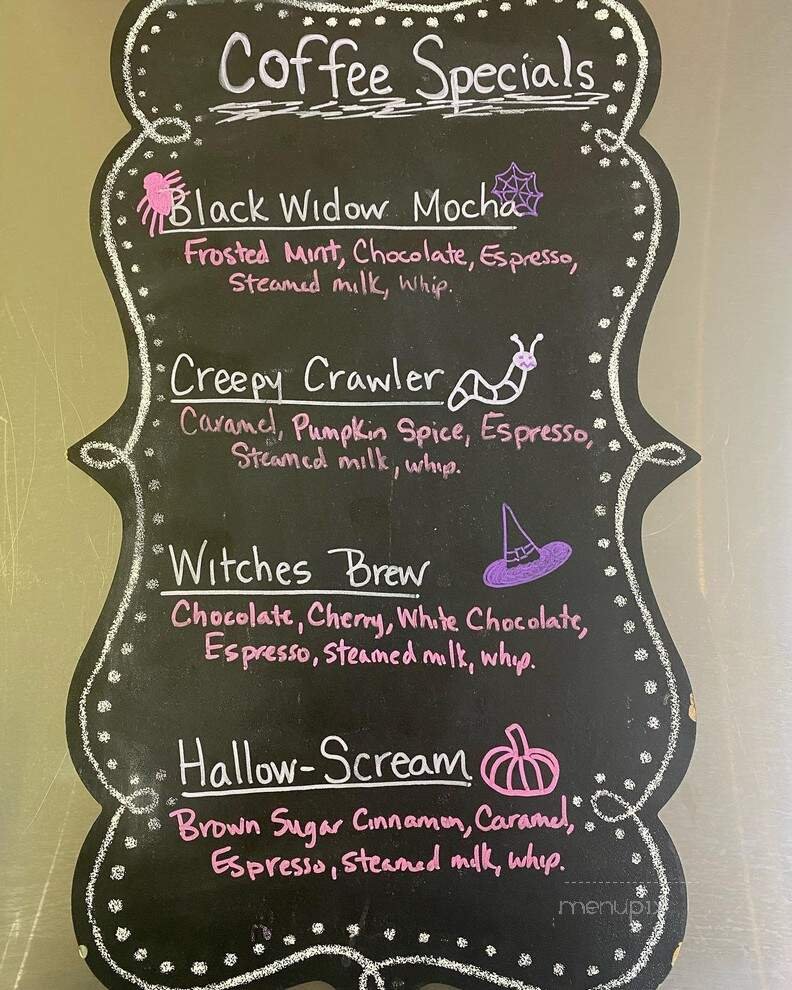 Coffee Specials
Black Widow Mocha
Frosted Mint, Chocolate, Espresso,
Steamed milk, whip.
Creepy Crawler
Caramel, Pumpkin Spice, Espresso,
Steamed milk, whip.
Witches Brew
Chocolate, Cherry, White Chocolate,
Espresso, steamed milk, whip.
Hallow-Scream
Brown Sugar Cinnamon, Caramel,
Espresso, steamed milk, whip.
menupix